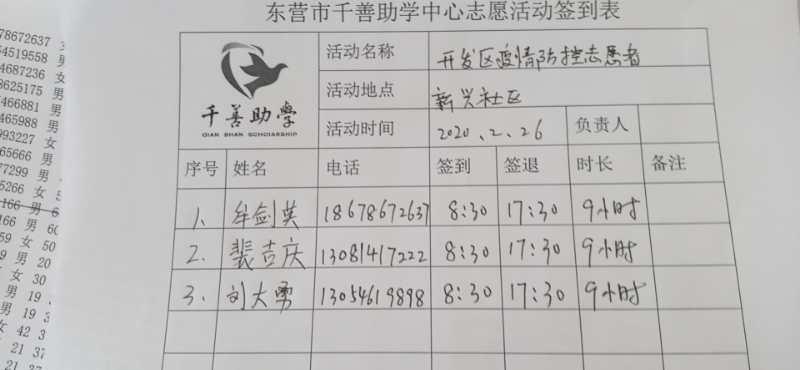 东营市千善助学中心志愿活动签到表
千善助学
QIAN SHAN SCHOLARSHIP
活动名称 开发区疫情防控志愿者
活动地点 新兴社区
活动时间 2020、2、26 负责人
序号 姓名 电话 签到 签退 时长 备注
1、 牟剑英 18678672637 8:30 17:30 9小时
2、 裴吉庆 13081417222 8:30 17:30 9小时
3、 刘大勇 13054619898 8:30 17:30 9小时
78672637
54519558 男
4687236 女
8625175 男
7466881 男
465988 男
993227 女
65666 男
77299 男
5266 女
166 男 6
166 男 60
59 女 50
09 男 20
女 30
男 19
男 19 3
女 42 3
21 37
21 37